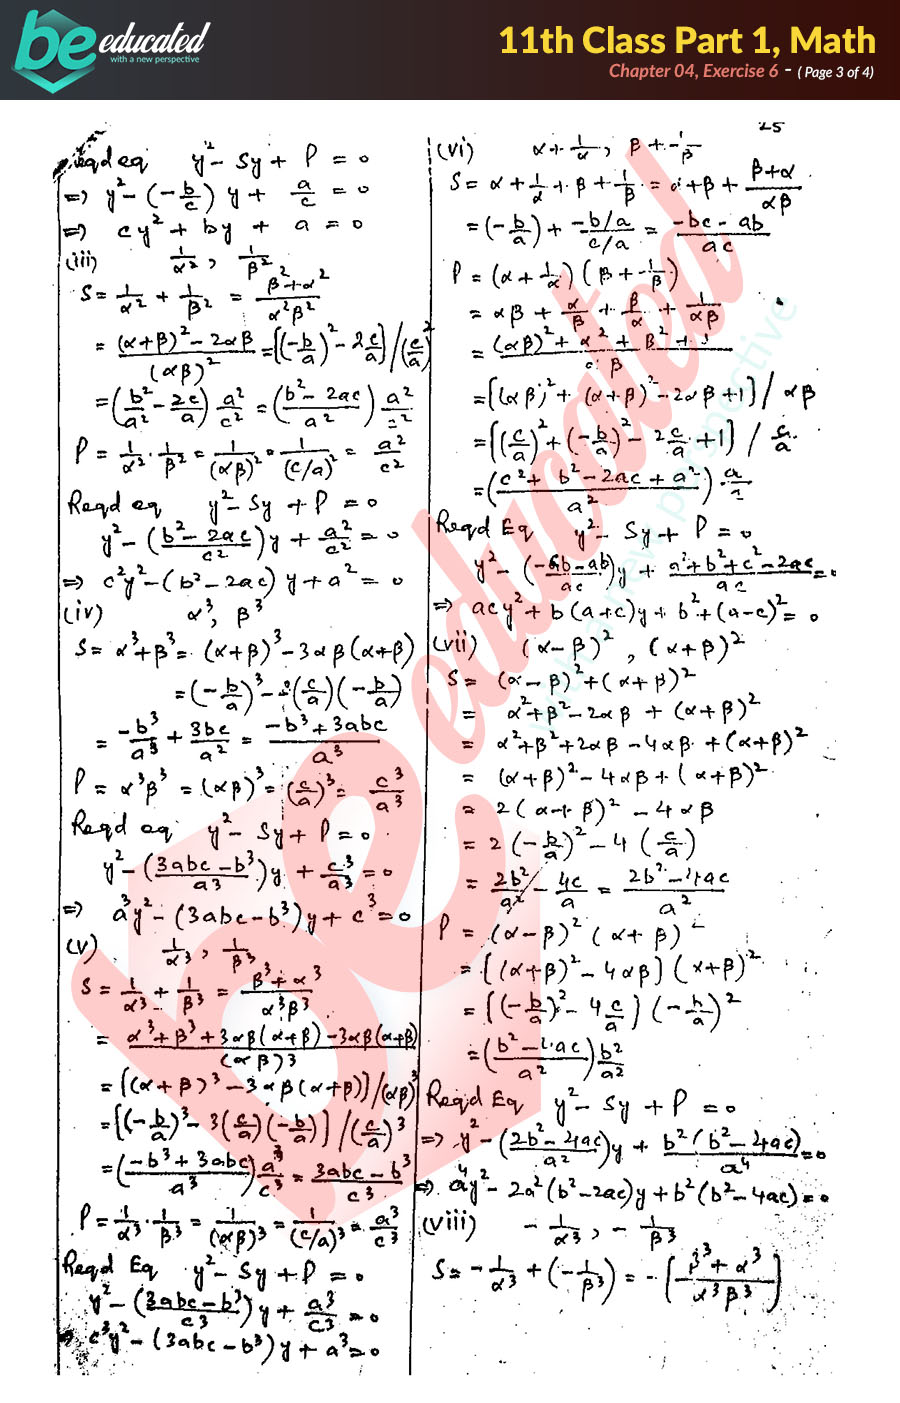 be educated
with a new perspective
11th Class Part 1, Math
Chapter 04, Exercise 6 - ( Page 3 of 4)
Reqd eq y² - Sy + P = 0
⇒ y² - (-b/c) y + a/c = 0
⇒ cy² + by + a = 0
(iii) 1/α², 1/β²
S = 1/α² + 1/β² = (β² + α²)/(α²β²)
= ((α+β)² - 2αβ)/(αβ)² = [(-b/a)² - 2c/a] / (c/a)²
= (b²/a² - 2c/a) a²/c² = ((b² - 2ac)/a²) a²/c²
P = 1/α² · 1/β² = 1/(αβ)² = 1/(c/a)² = a²/c²
Reqd eq y² - Sy + P = 0
y² - ((b² - 2ac)/c²) y + a²/c² = 0
⇒ c²y² - (b² - 2ac) y + a² = 0
(iv) α³, β³
S = α³ + β³ = (α+β)³ - 3αβ(α+β)
= (-b/a)³ - 3(c/a)(-b/a)
= -b³/a³ + 3bc/a² = (-b³ + 3abc)/a³
P = α³β³ = (αβ)³ = (c/a)³ = c³/a³
Reqd eq y² - Sy + P = 0
y² - ((3abc - b³)/a³) y + c³/a³ = 0
⇒ a³y² - (3abc - b³) y + c³ = 0
(v) 1/α³, 1/β³
S = 1/α³ + 1/β³ = (β³ + α³)/(α³β³)
= (α³ + β³ + 3αβ(α+β) - 3αβ(α+β))/(αβ)³
= [(α+β)³ - 3αβ(α+β)] / (αβ)³
= [(-b/a)³ - 3(c/a)(-b/a)] / (c/a)³
= ((-b³ + 3abc)/a³) a³/c³ = (3abc - b³)/c³
P = 1/α³ · 1/β³ = 1/(αβ)³ = 1/(c/a)³ = a³/c³
Reqd Eq y² - Sy + P = 0
y² - ((3abc - b³)/c³) y + a³/c³ = 0
⇒ c³y² - (3abc - b³) y + a³ = 0
25
(vi) α + 1/α, β + 1/β
S = α + 1/α + β + 1/β = α + β + (β+α)/(αβ)
= (-b/a) + (-b/a)/(c/a) = (-bc - ab)/(ac)
P = (α + 1/α) (β + 1/β)
= αβ + α/β + β/α + 1/(αβ)
= ((αβ)² + α² + β² + 1)/(αβ)
= [(αβ)² + (α+β)² - 2αβ + 1] / αβ
= [(c/a)² + (-b/a)² - 2c/a + 1] / c/a
= ((c² + b² - 2ac + a²)/a²) · a/c
Reqd Eq y² - Sy + P = 0
y² - ((-cb - ab)/ac) y + (a² + b² + c² - 2ac)/ac = 0
⇒ acy² + b(a+c)y + b² + (a-c)² = 0
(vii) (α-β)², (α+β)²
S = (α-β)² + (α+β)²
= α² + β² - 2αβ + (α+β)²
= α² + β² + 2αβ - 4αβ + (α+β)²
= (α+β)² - 4αβ + (α+β)²
= 2(α+β)² - 4αβ
= 2(-b/a)² - 4(c/a)
= 2b²/a² - 4c/a = (2b² - 4ac)/a²
P = (α-β)² (α+β)²
= [(α+β)² - 4αβ] (α+β)²
= [(-b/a)² - 4c/a] (-b/a)²
= ((b² - 4ac)/a²) b²/a²
Reqd Eq y² - Sy + P = 0
⇒ y² - ((2b² - 4ac)/a²) y + b²(b² - 4ac)/a⁴ = 0
⇒ a⁴y² - 2a²(b² - 2ac)y + b²(b² - 4ac) = 0
(viii) -1/α³, -1/β³
S = -1/α³ + (-1/β³) = -[(β³ + α³)/(α³β³)]